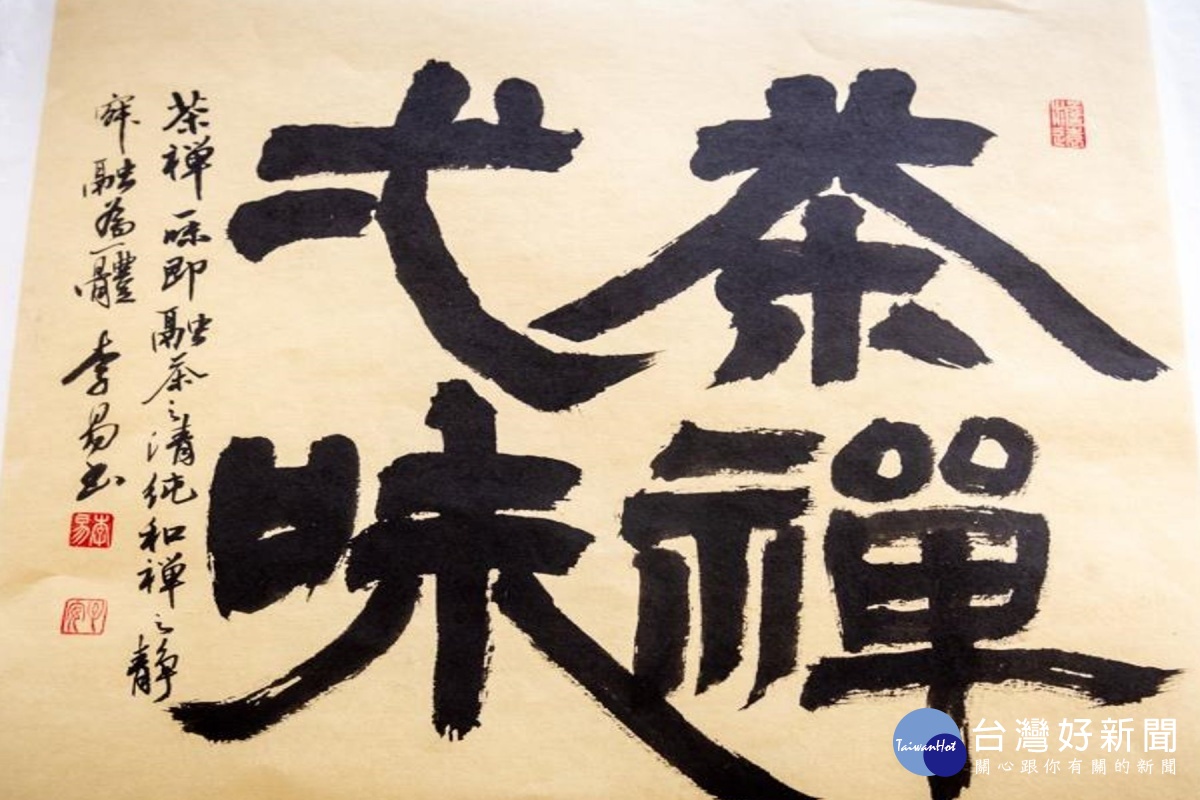 茶禪
弌味
茶禅一味即融茶之清纯和禅之静
寂融為一體 李易书
李易
TaiwanHot
台灣好新聞
關心跟你有關的新聞